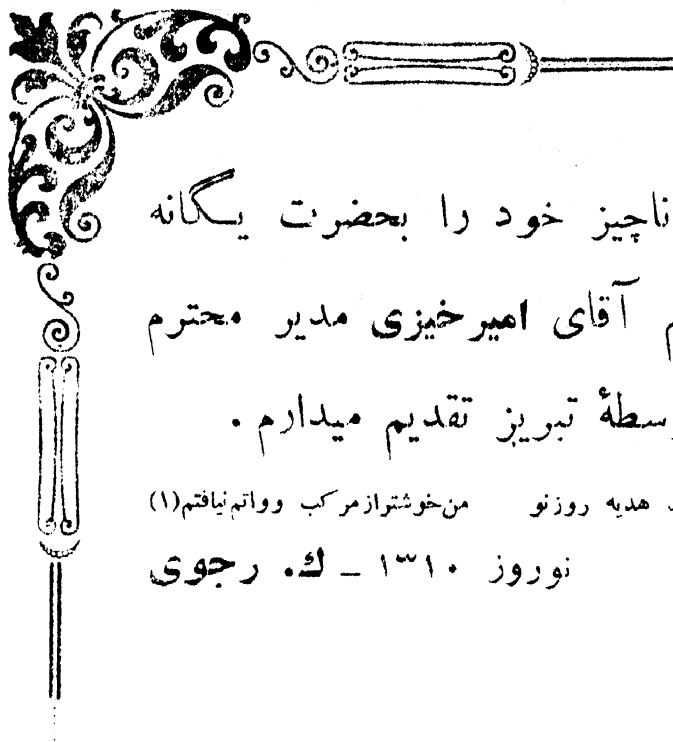 ناچیز خود را بحضرت یگانه
آقای امیرخیزی مدیر محترم
تبریز تقدیم میدارم .
هدیه روزنو من‌خوشتر از مرکب و واتم نیافتم (۱)
نوروز ۱۳۱۰ ــ ك. رجوی